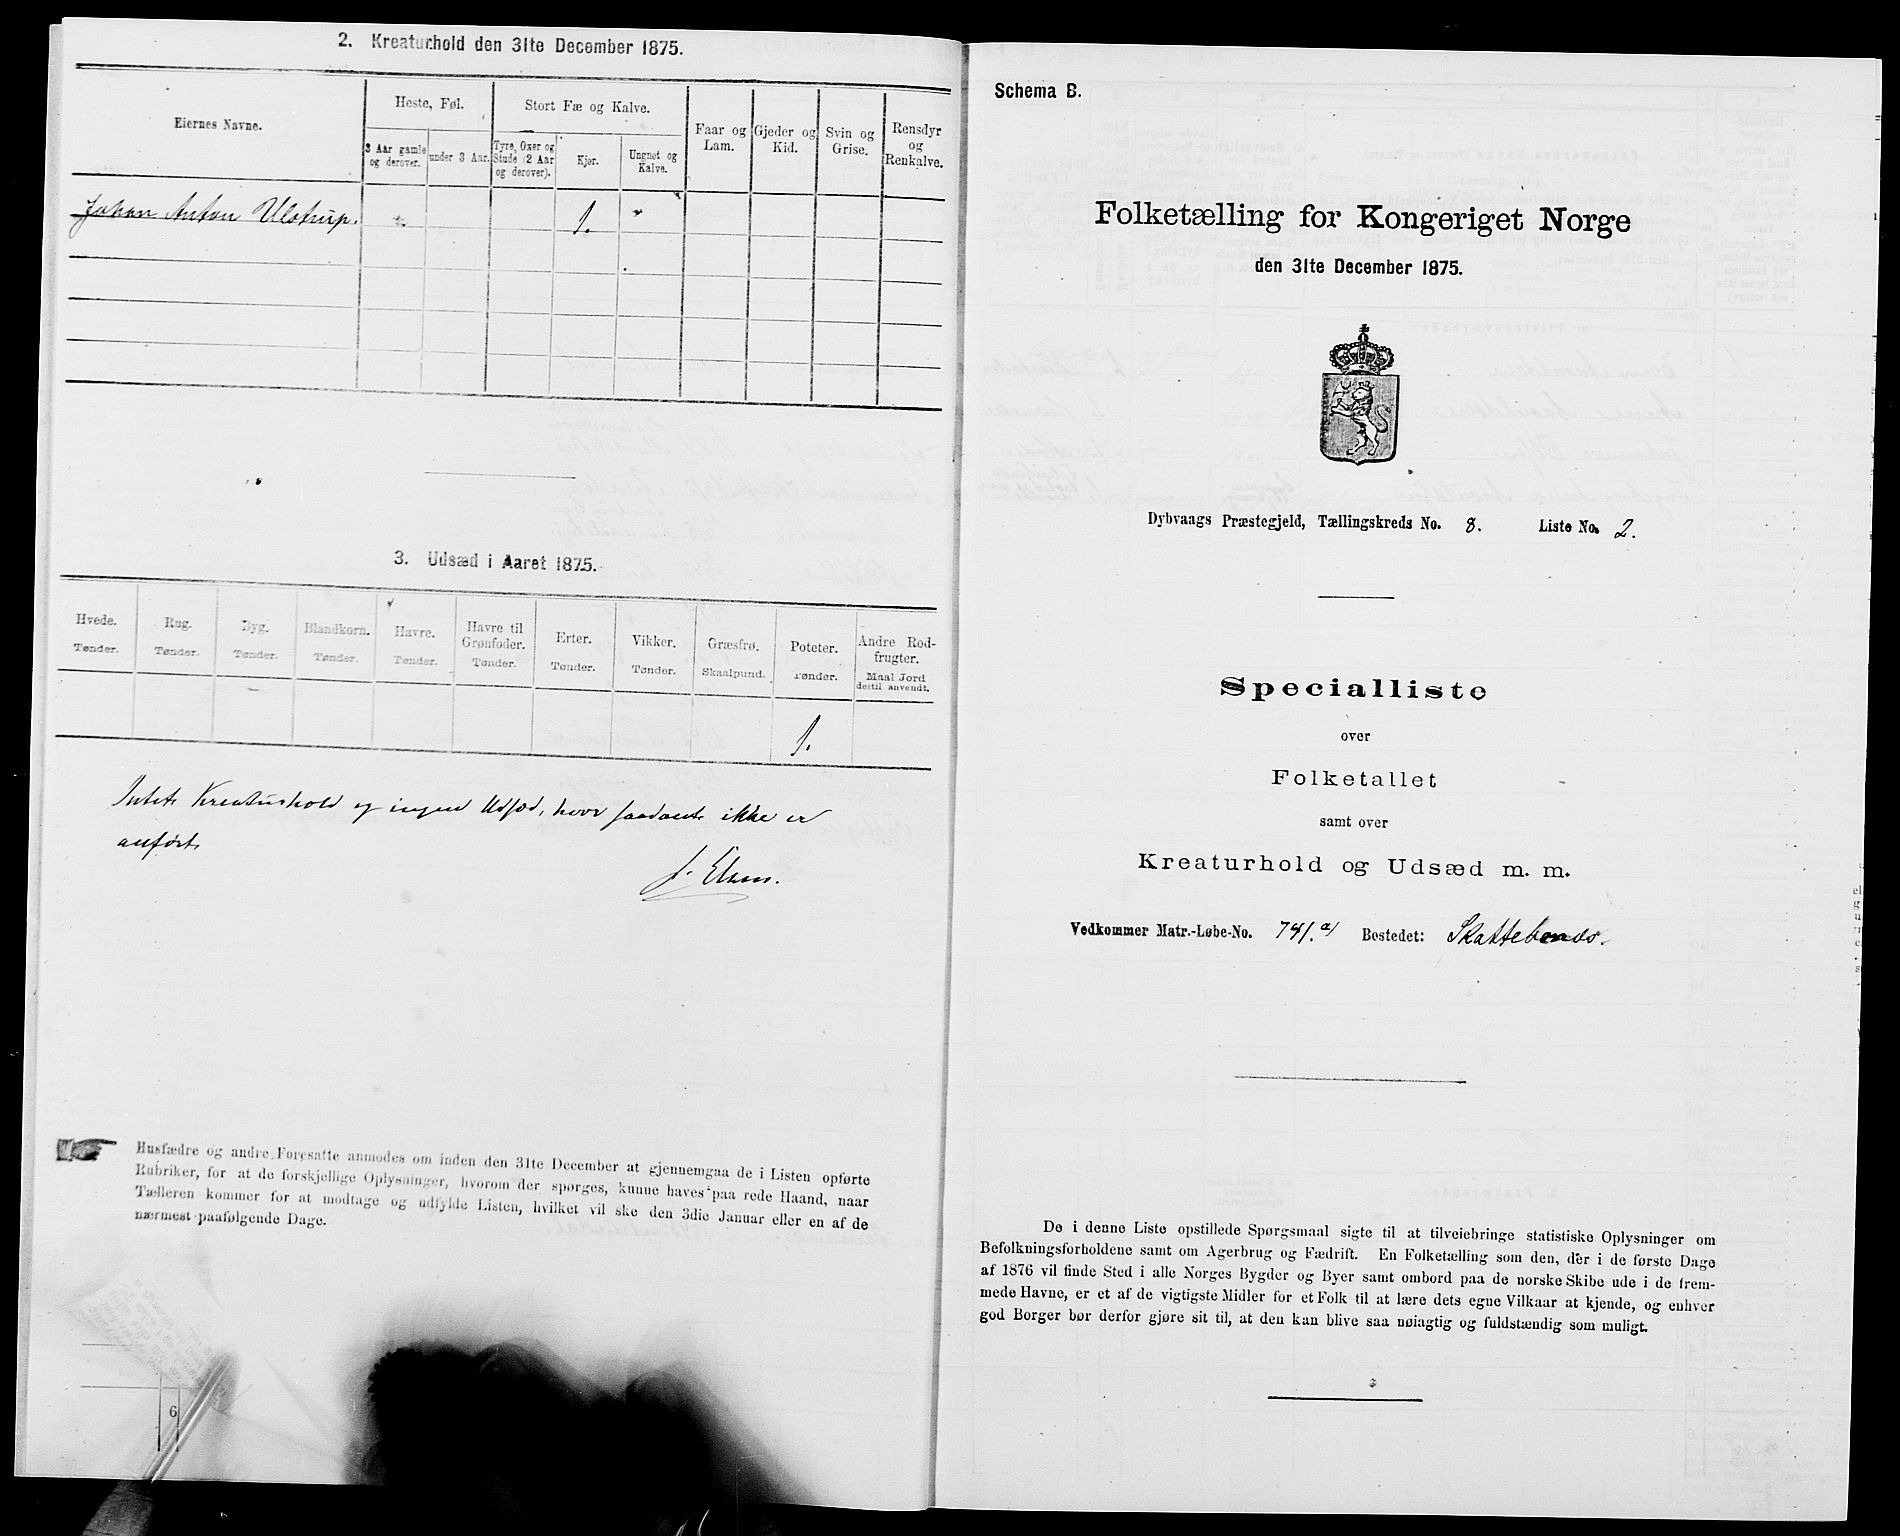 2. Kreaturhold den 31te December 1875.
Eiernes Navne.
Heste, Føl.
Stort Fæ og Kalve.
Faar og Lam.
Gjeder og Kid.
Svin og Grise.
Rensdyr og Renkalve.
3 Aar gamle og derover.
under 3 Aar.
Tyre, Oxer og Stude (2 Aar og derover).
Kjør.
Ungnøt og Kalve.
Johan Anton Ulstrup. 1.
3. Udsæd i Aaret 1875.
Hvede. Tønder.
Rug. Tønder.
Byg. Tønder.
Blandkorn. Tønder.
Havre. Tønder.
Havre til Grønfoder. Tønder.
Erter. Tønder.
Vikker. Tønder.
Græsfrø. Skaalpund.
Poteter. Tønder.
Andre Rodfrugter. Maal Jord dertil anvendt.
1.
Intet Kreaturhold og ingen Udsæd, hvor saadant ikke er
anført.
Husfædre og andre Foresatte anmodes om inden den 31te December at gjennemgaa de i Listen opførte
Rubriker, for at de forskjellige Oplysninger, hvorom der spørges, kunne haves paa rede Haand, naar
Tælleren kommer for at modtage og udfylde Listen, hvilket vil ske den 3die Januar eller en af de
nærmest paafølgende Dage.
6
Schema B.
Folketælling for Kongeriget Norge
den 31te December 1875.
Dybvaags Præstegjeld, Tællingskreds No. 8. Liste No. 2.
Specialliste
over
Folketallet
samt over
Kreaturhold og Udsæd m. m.
Vedkommer Matr.-Løbe-No. 741.a) Bostedet: Skattebonds.
De i denne Liste opstillede Spørgsmaal sigte til at tilveiebringe statistiske Oplysninger om
Befolkningsforholdene samt om Agerbrug og Fædrift. En Folketælling som den, der i de første Dage
af 1876 vil finde Sted i alle Norges Bygder og Byer samt ombord paa de norske Skibe ude i de frem-
mede Havne, er et af de vigtigste Midler for et Folk til at lære dets egne Vilkaar at kjende, og enhver
god Borger bør derfor gjøre sit til, at den kan blive saa nøiagtig og fuldstændig som muligt.